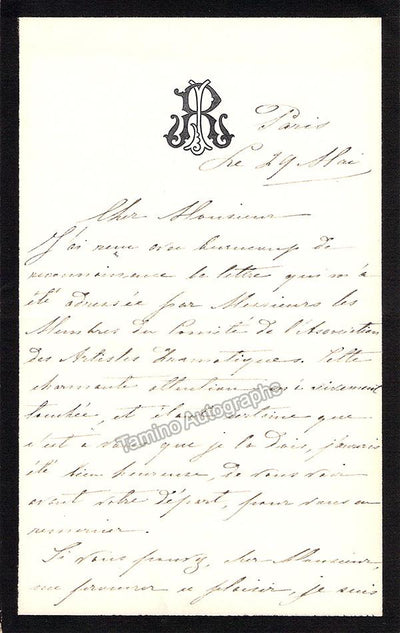 Paris
Le 29 Mai
Cher Monsieur
J'ai reçu avec beaucoup de
reconnaissance la lettre qui m'a
été adressée par Messieurs les
Membres du Comité de l'Association
des Artistes dramatiques. Cette
charmante attention m'a vivement
touchée, et étant certaine que
c'est à vous que je la dois, j'aurais
été bien heureuse, de vous voir
avant votre départ, pour vous en
remercier.
Si vous pouvez, cher Monsieur,
me procurer ce plaisir, je suis
Tamino Autographs